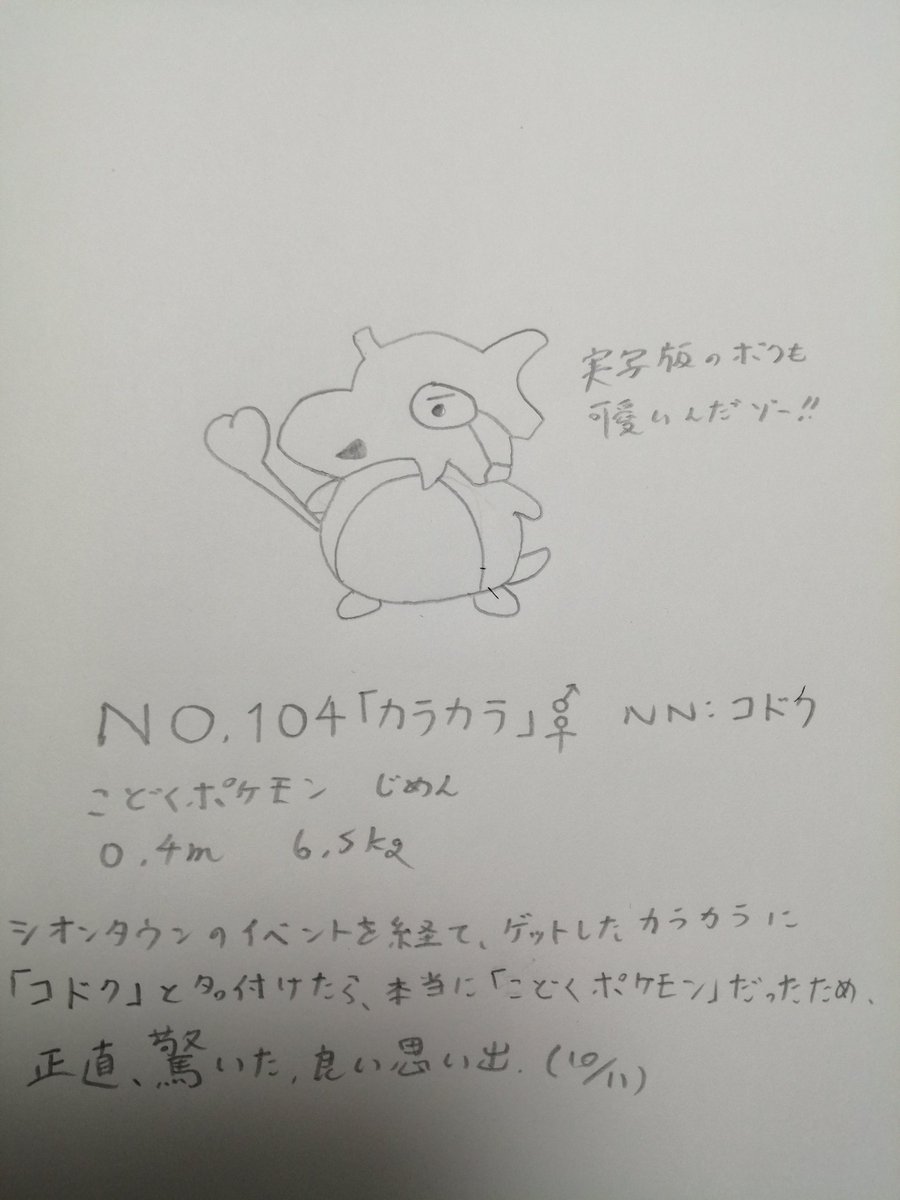 実写版のボクも
可愛いんだゾー!!
NO.104「カラカラ」♂♀ NN:コドク
こどくポケモン じめん
0.4m 6.5kg
シオンタウンのイベントを経て、ゲットしたカラカラに
「コドク」と名付けたら、本当に「こどくポケモン」だったため、
正直、驚いた、良い思い出.(10/11)